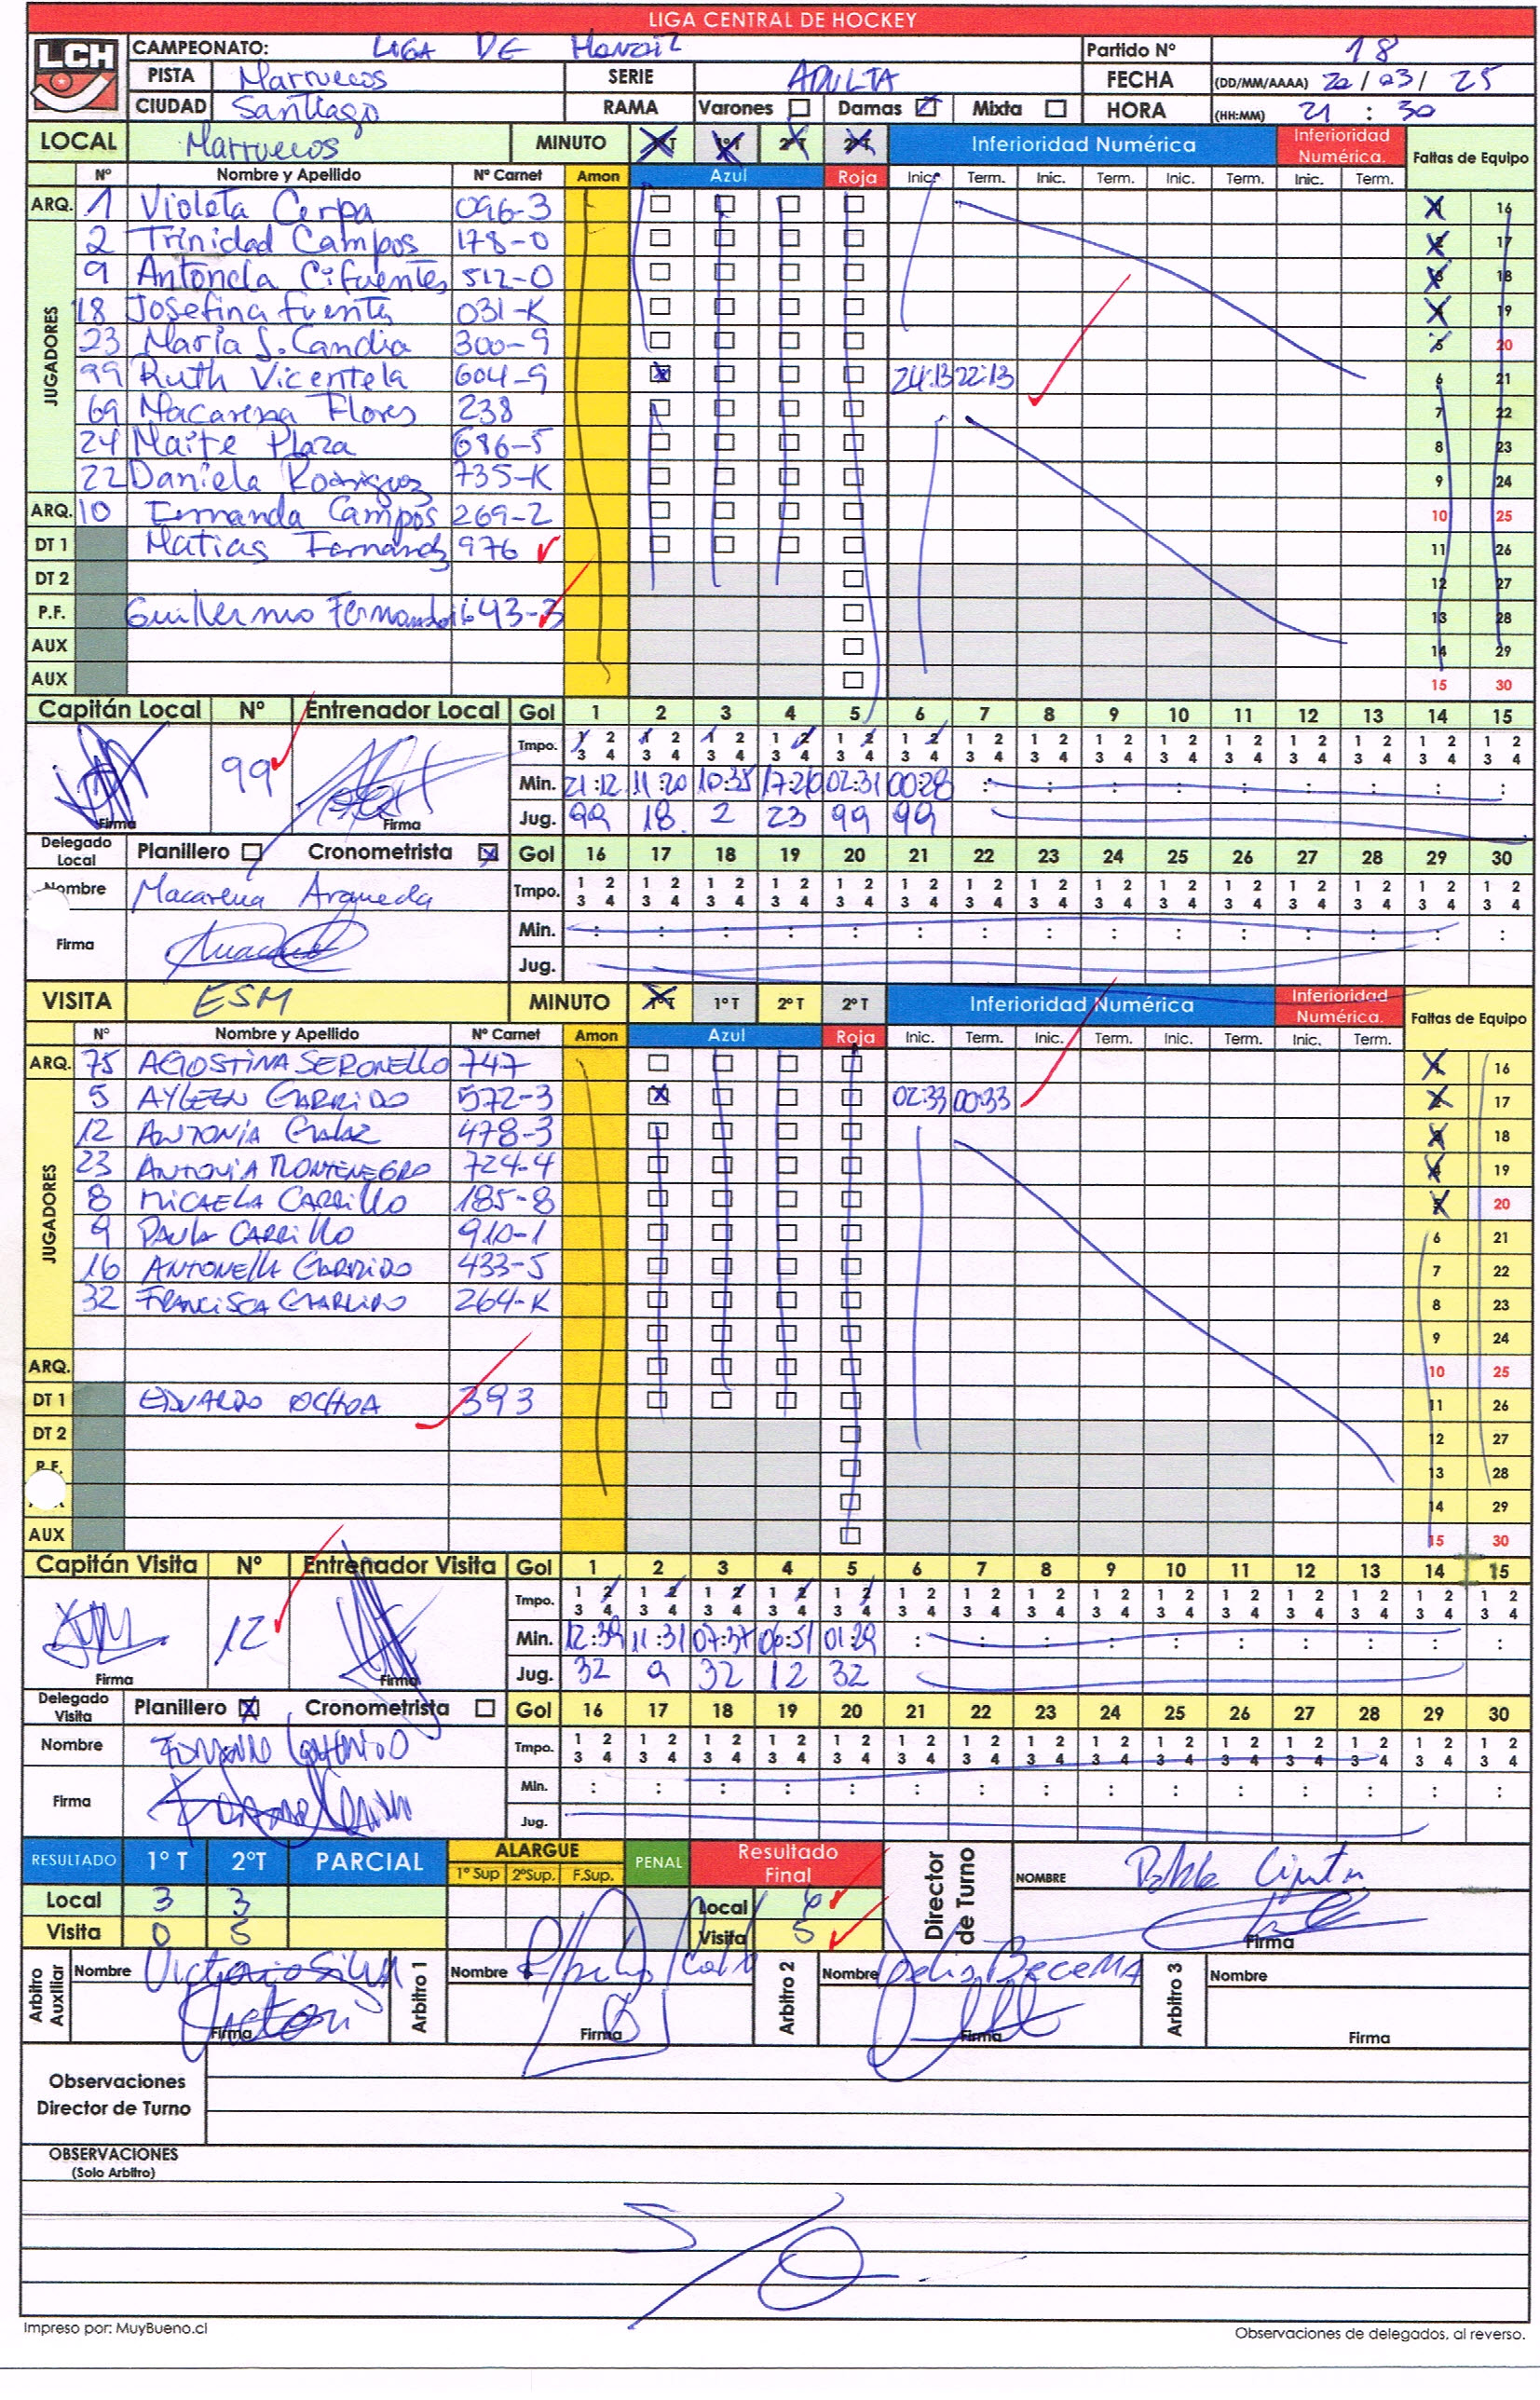 LIGA CENTRAL DE HOCKEY
LCH
CAMPEONATO: LIGA DE Honor Partido Nº 18
PISTA Marruecos SERIE ADULTA FECHA (DD/MM/AAAA) 22 / 03 / 25
CIUDAD Santiago RAMA Varones Damas Mixta HORA (HH:MM) 21 : 30
LOCAL Marruecos MINUTO 2ºT 2ºT Inferioridad Numérica Inferioridad Numérica. Faltas de Equipo
Nº Nombre y Apellido Nº Carnet Amon Azul Roja Inic. Term. Inic. Term. Inic. Term. Inic. Term.
JUGADORES
ARQ. 1 Violeta Cerpa 096-3 1 16
2 Trinidad Campos 178-0 2 17
9 Antonela Cifuentes 512-0 3 18
18 Josefina Fuente 031-K 4 19
23 María S. Candia 300-9 5 20
99 Ruth Vicentela 604-9 24:13 22:13 6 21
69 Macarena Flores 238 7 22
24 Maite Plaza 686-5 8 23
22 Daniela Rodriguez 735-K 9 24
ARQ. 10 Fernanda Campos 269-2 10 25
DT 1 Matias Fernandz 976 11 26
DT 2 12 27
P.F. Guillermo Fernandoi 643-3 13 28
AUX 14 29
AUX 15 30
Capitán Local Nº Entrenador Local Gol 1 2 3 4 5 6 7 8 9 10 11 12 13 14 15
Tmpo. 1 2 1 2 1 2 1 2 1 2 1 2 1 2 1 2 1 2 1 2 1 2 1 2 1 2 1 2 1 2
3 4 3 4 3 4 3 4 3 4 3 4 3 4 3 4 3 4 3 4 3 4 3 4 3 4 3 4 3 4
99 Min. 21:12 11:20 10:38 17:20 02:31 00:28 : : : : : : : : :
Firma Firma Jug. 99 18 2 23 99 99
Delegado Local Planillero Cronometrista Gol 16 17 18 19 20 21 22 23 24 25 26 27 28 29 30
Nombre Macarena Araneda Tmpo. 1 2 1 2 1 2 1 2 1 2 1 2 1 2 1 2 1 2 1 2 1 2 1 2 1 2 1 2 1 2
3 4 3 4 3 4 3 4 3 4 3 4 3 4 3 4 3 4 3 4 3 4 3 4 3 4 3 4 3 4
Firma Min. : : : : : : : : : : : : : : :
Jug.
VISITA ESM MINUTO 1ºT 1ºT 2ºT 2ºT Inferioridad Numérica Inferioridad Numérica. Faltas de Equipo
Nº Nombre y Apellido Nº Carnet Amon Azul Roja Inic. Term. Inic. Term. Inic. Term. Inic. Term.
JUGADORES
ARQ. 75 AGOSTINA SERONELLO 747 1 16
5 AYLEEN GARRIDO 572-3 02:33 00:33 2 17
12 ANTONIA GALAZ 478-3 3 18
23 ANTONIA MONTENEGRO 724-4 4 19
8 MICAELA CARRILLO 185-8 5 20
9 PAULA CARRILLO 910-1 6 21
16 ANTONELLA GARRIDO 433-5 7 22
32 FRANCISCA GARRIDO 264-K 8 23
9 24
ARQ. 10 25
DT 1 EDUARDO OCHOA 393 11 26
DT 2 12 27
P.F. 13 28
14 29
AUX 15 30
Capitán Visita Nº Entrenador Visita Gol 1 2 3 4 5 6 7 8 9 10 11 12 13 14 15
Tmpo. 1 2 1 2 1 2 1 2 1 2 1 2 1 2 1 2 1 2 1 2 1 2 1 2 1 2 1 2 1 2
3 4 3 4 3 4 3 4 3 4 3 4 3 4 3 4 3 4 3 4 3 4 3 4 3 4 3 4 3 4
12 Min. 12:39 11:31 07:37 06:51 01:29 : : : : : : : : : :
Firma Firma Jug. 32 9 32 12 32
Delegado Visita Planillero Cronometrista Gol 16 17 18 19 20 21 22 23 24 25 26 27 28 29 30
Nombre Tmpo. 1 2 1 2 1 2 1 2 1 2 1 2 1 2 1 2 1 2 1 2 1 2 1 2 1 2 1 2 1 2
3 4 3 4 3 4 3 4 3 4 3 4 3 4 3 4 3 4 3 4 3 4 3 4 3 4 3 4 3 4
Firma Min. : : : : : : : : : : : : : : :
Jug.
RESULTADO 1º T 2ºT PARCIAL ALARGUE 1º Sup 2ºSup. F.Sup. PENAL Resultado Final Director de Turno NOMBRE
Local 3 3 Local 6
Visita 0 5 Visita 5 Firma
Arbitro Auxiliar Nombre Victorio Silva Arbitro 1 Nombre Arbitro 2 Nombre Becerra Arbitro 3 Nombre
Firma Firma Firma Firma
Observaciones
Director de Turno
OBSERVACIONES
(Solo Arbitro)
Impreso por: MuyBueno.cl Observaciones de delegados, al reverso.